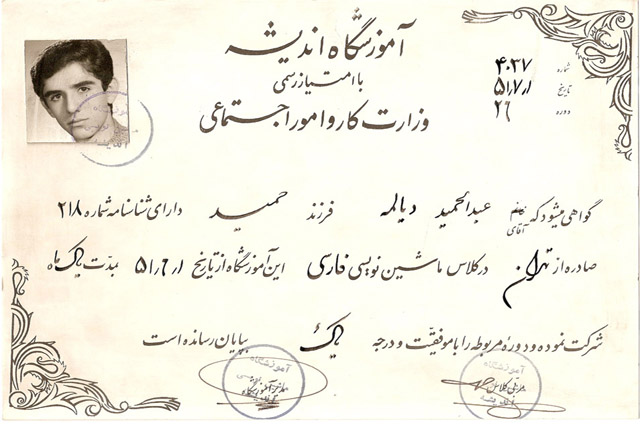 آموزشگاه اندیشه
با امتیاز رسمی
وزارت کار و امور اجتماعی
شماره ۴۰۲۷
تاریخ ۵۱٫۷٫۱
دوره ۲۶
گواهی میشود که خانم آقای عبدالحمید دیالمه فرزند حمید دارای شناسنامه شماره ۲۱۸
صادره از تهران در کلاس ماشین نویسی فارسی این آموزشگاه از تاریخ ۵۱٫۶٫۱ بمدت یک ماه
شرکت نموده و دوره مربوطه را با موفقیت و درجه یک بپایان رسانده است
آموزشگاه
مربی کلاس
آموزشگاه